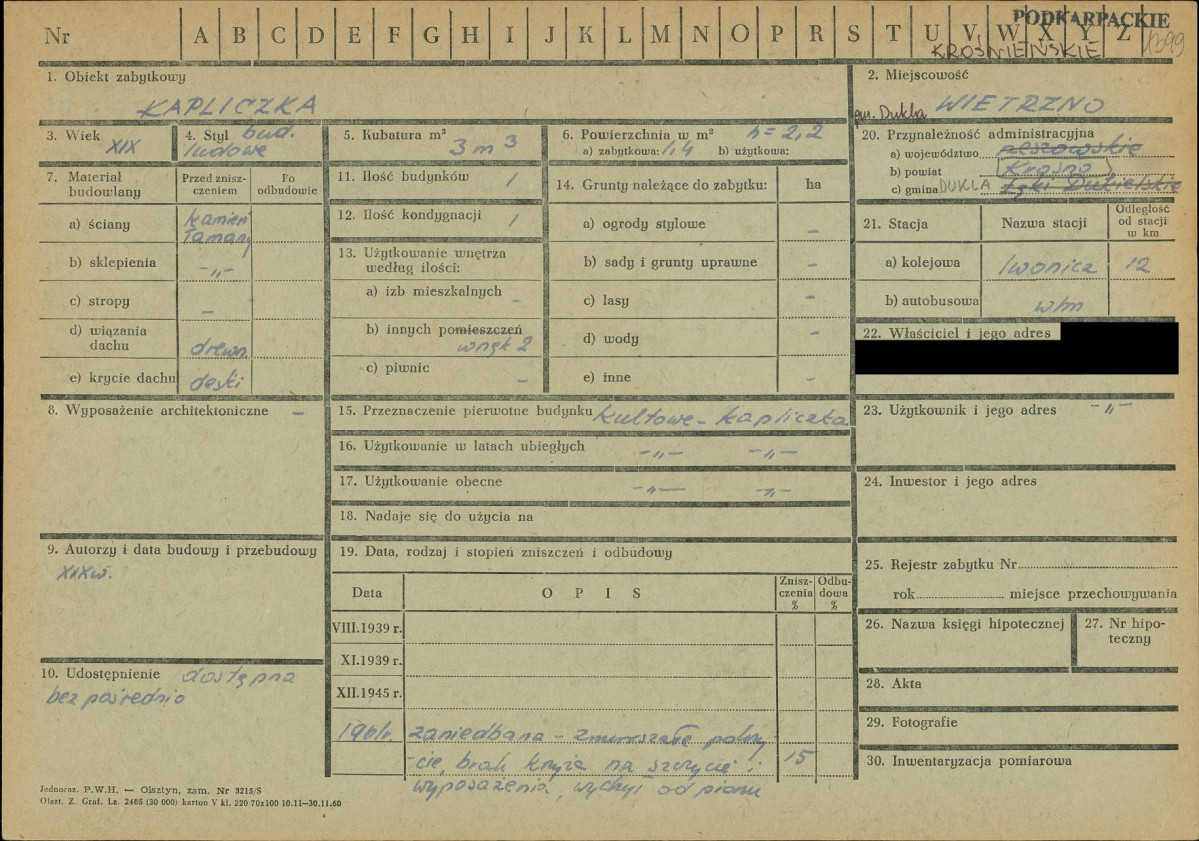 PODKARPACKIE
Nr A B C D E F G H I J K L M N O P R S T U V W X Y Z
KROŚNIEŃSKIE 1399
1. Obiekt zabytkowy
KAPLICZKA
2. Miejscowość
pow. Dukla WIETRZNO
3. Wiek
XIX
4. Styl bud.
ludowe
5. Kubatura m³
3 m³
6. Powierzchnia w m² h = 2,2
a) zabytkowa: 1,4 b) użytkowa:
20. Przynależność administracyjna
a) województwo rzeszowskie
b) powiat Krosno
c) gmina DUKLA Łęki Dukielskie
7. Materiał budowlany
Przed zniszczeniem
Po odbudowie
a) ściany kamień łamany
b) sklepienia -„-
c) stropy -
d) wiązania dachu drewn.
e) krycie dachu deski
11. Ilość budynków 1
12. Ilość kondygnacji 1
13. Użytkowanie wnętrza według ilości:
a) izb mieszkalnych -
b) innych pomieszczeń
wnęk 2
c) piwnic -
14. Grunty należące do zabytku: ha
a) ogrody stylowe -
b) sady i grunty uprawne -
c) lasy -
d) wody -
e) inne -
21. Stacja Nazwa stacji Odległość od stacji w km
a) kolejowa Iwonicz 12
b) autobusowa wm
22. Właściciel i jego adres
8. Wyposażenie architektoniczne -
15. Przeznaczenie pierwotne budynku kultowe - kapliczka
16. Użytkowanie w latach ubiegłych -„- -„-
17. Użytkowanie obecne -„- -„-
18. Nadaje się do użycia na
23. Użytkownik i jego adres -„-
24. Inwestor i jego adres
9. Autorzy i data budowy i przebudowy
XIXw.
19. Data, rodzaj i stopień zniszczeń i odbudowy
Data OPIS Zniszczenia % Odbudowa %
VIII.1939 r.
XI.1939 r.
XII.1945 r.
1961r. zaniedbana - zmurszałe pokry-
-cie, brak krzyża na szczycie i 15
wyposażenia, wychył od pionu
25. Rejestr zabytku Nr
rok miejsce przechowywania
26. Nazwa księgi hipotecznej
27. Nr hipoteczny
28. Akta
29. Fotografie
30. Inwentaryzacja pomiarowa
10. Udostępnienie dostępna
bezpośrednio
Jednoraz. P.W.H. — Olsztyn, zam. Nr 3215/S
Olszt. Z. Graf. Lz. 2465 (30 000) karton V kl. 220 70x100 10.11—30.11.60